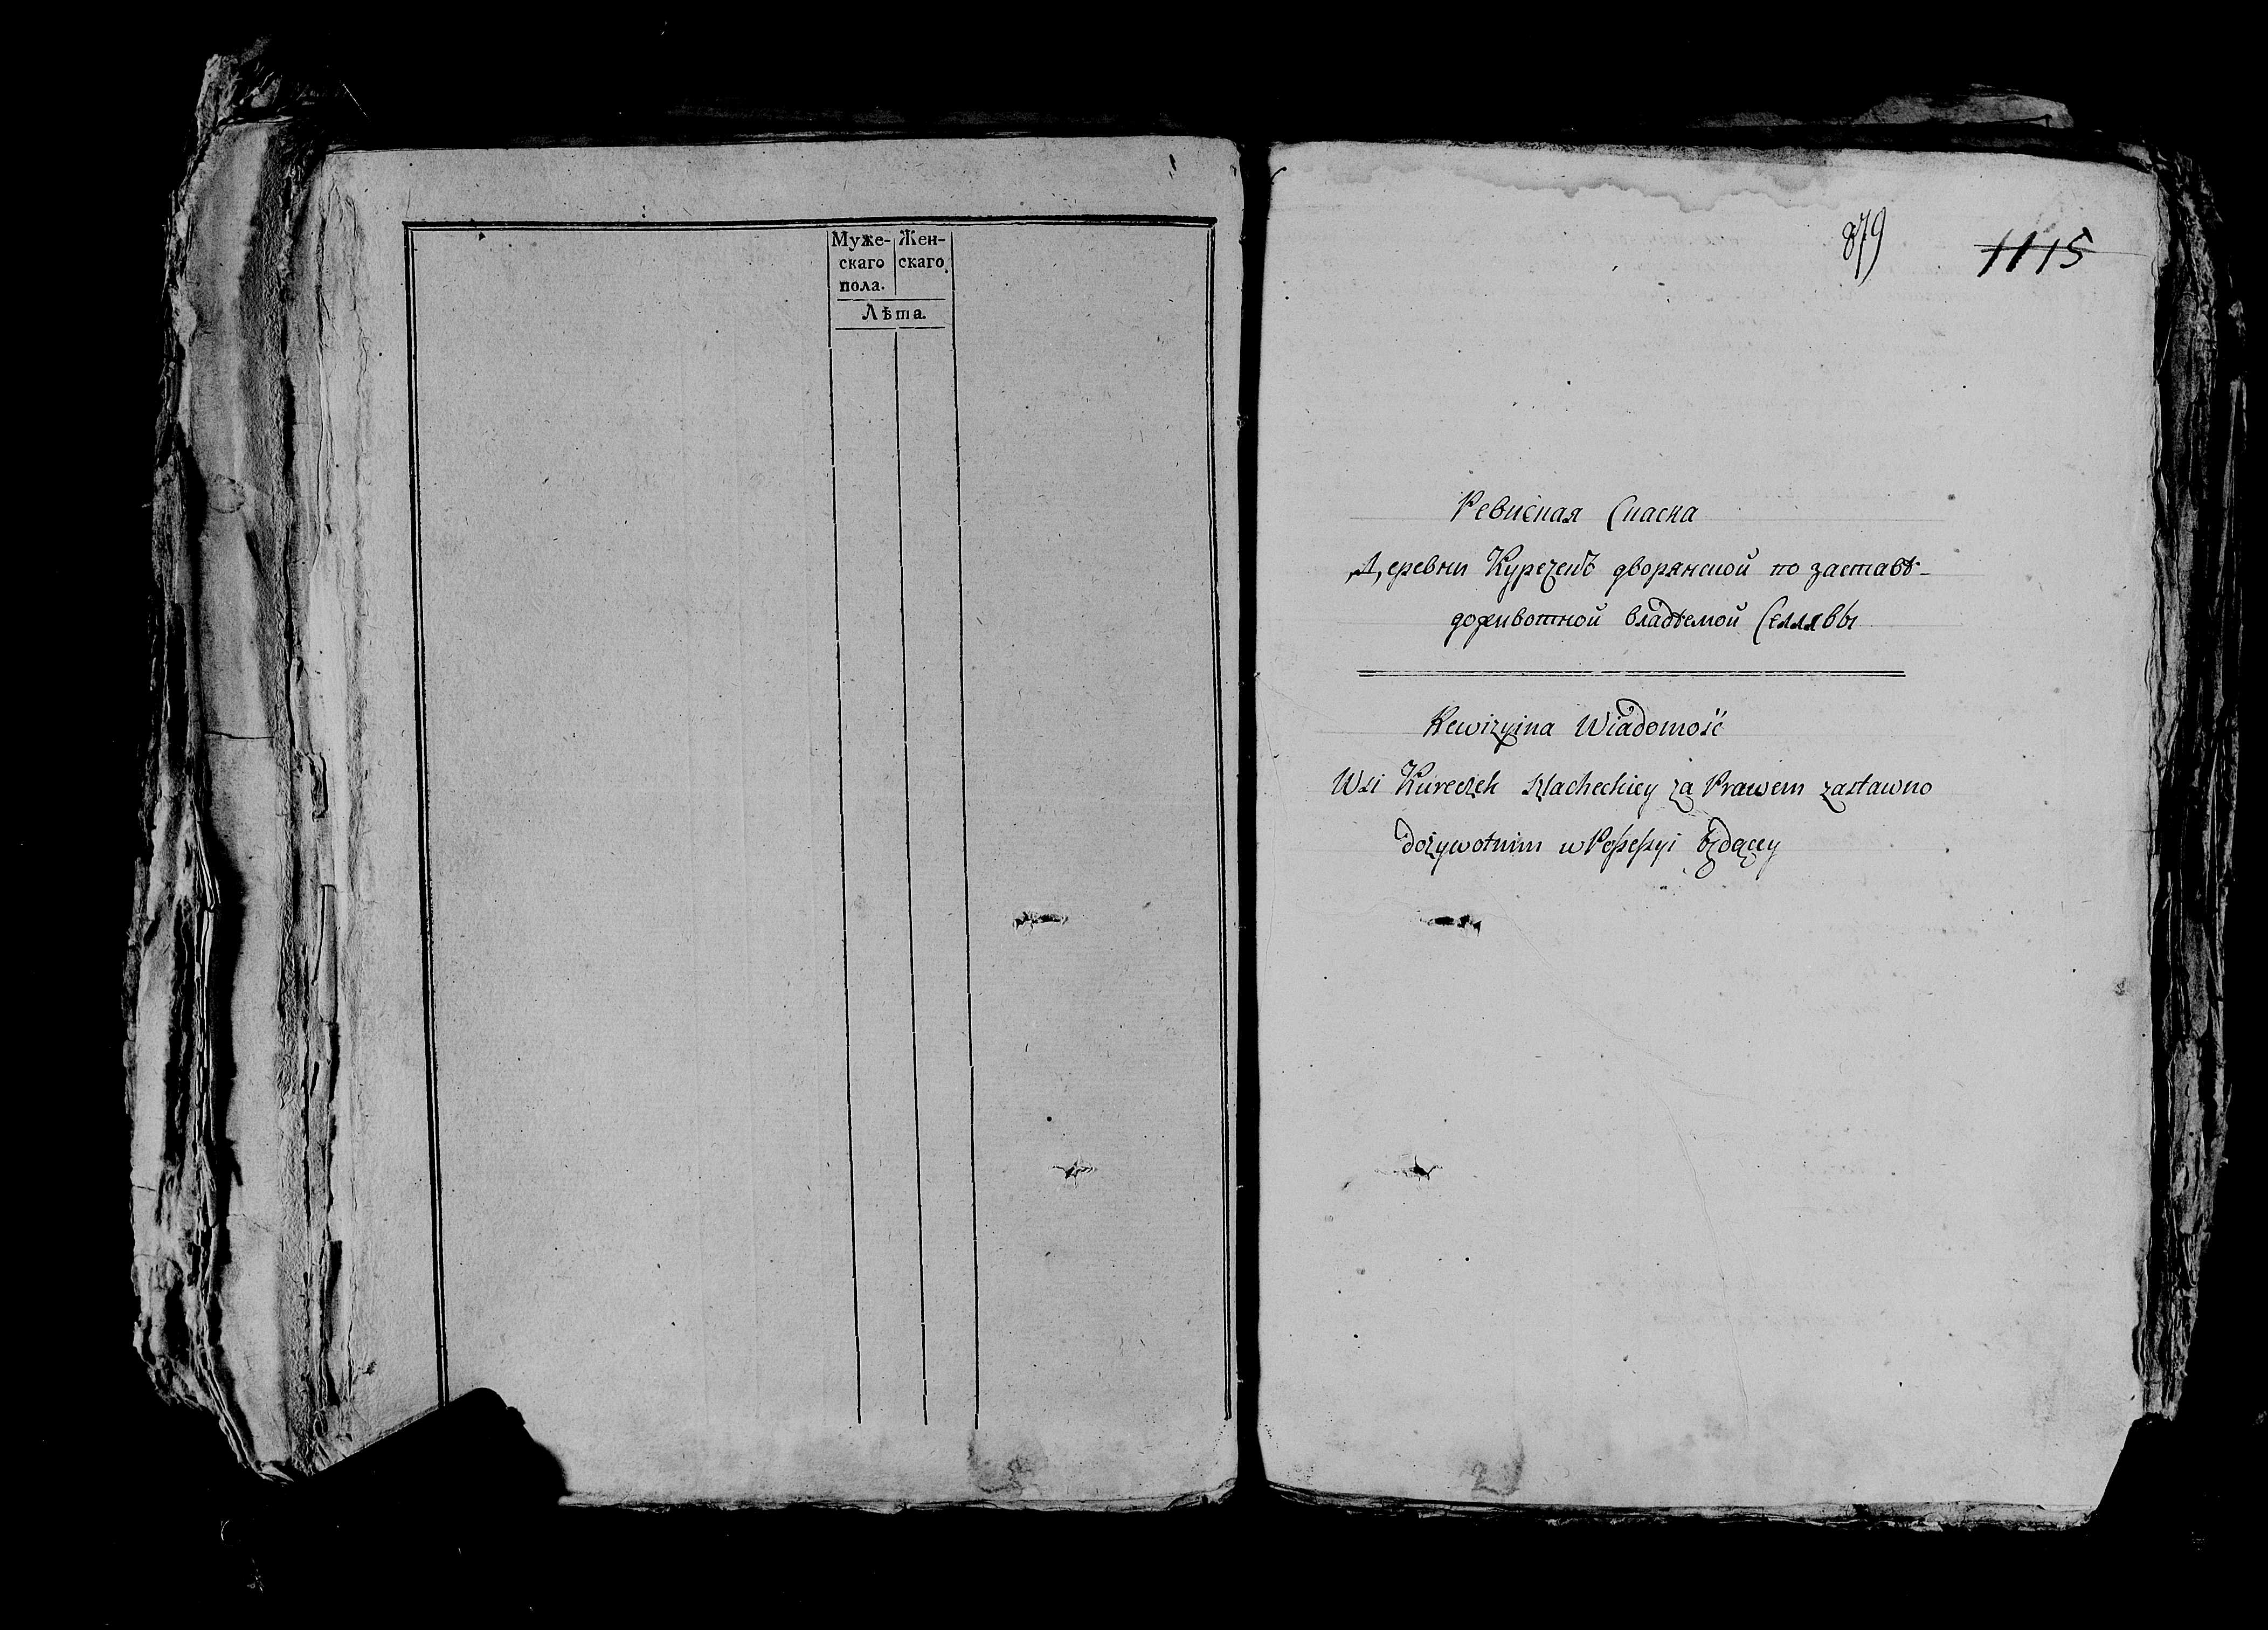 Муже- Жен-
скаго скаго
пола.
Лѣта.
879 1115
Ревиская Скаска
Деревни Куречекъ дворянской по заставѣ-
доживотной владѣемой Селлявы
Rewizyina Wiadomość
Wsi Kureczek Szlacheckiey za Prawem zastawno
dożywotnim w Possessyi będącey